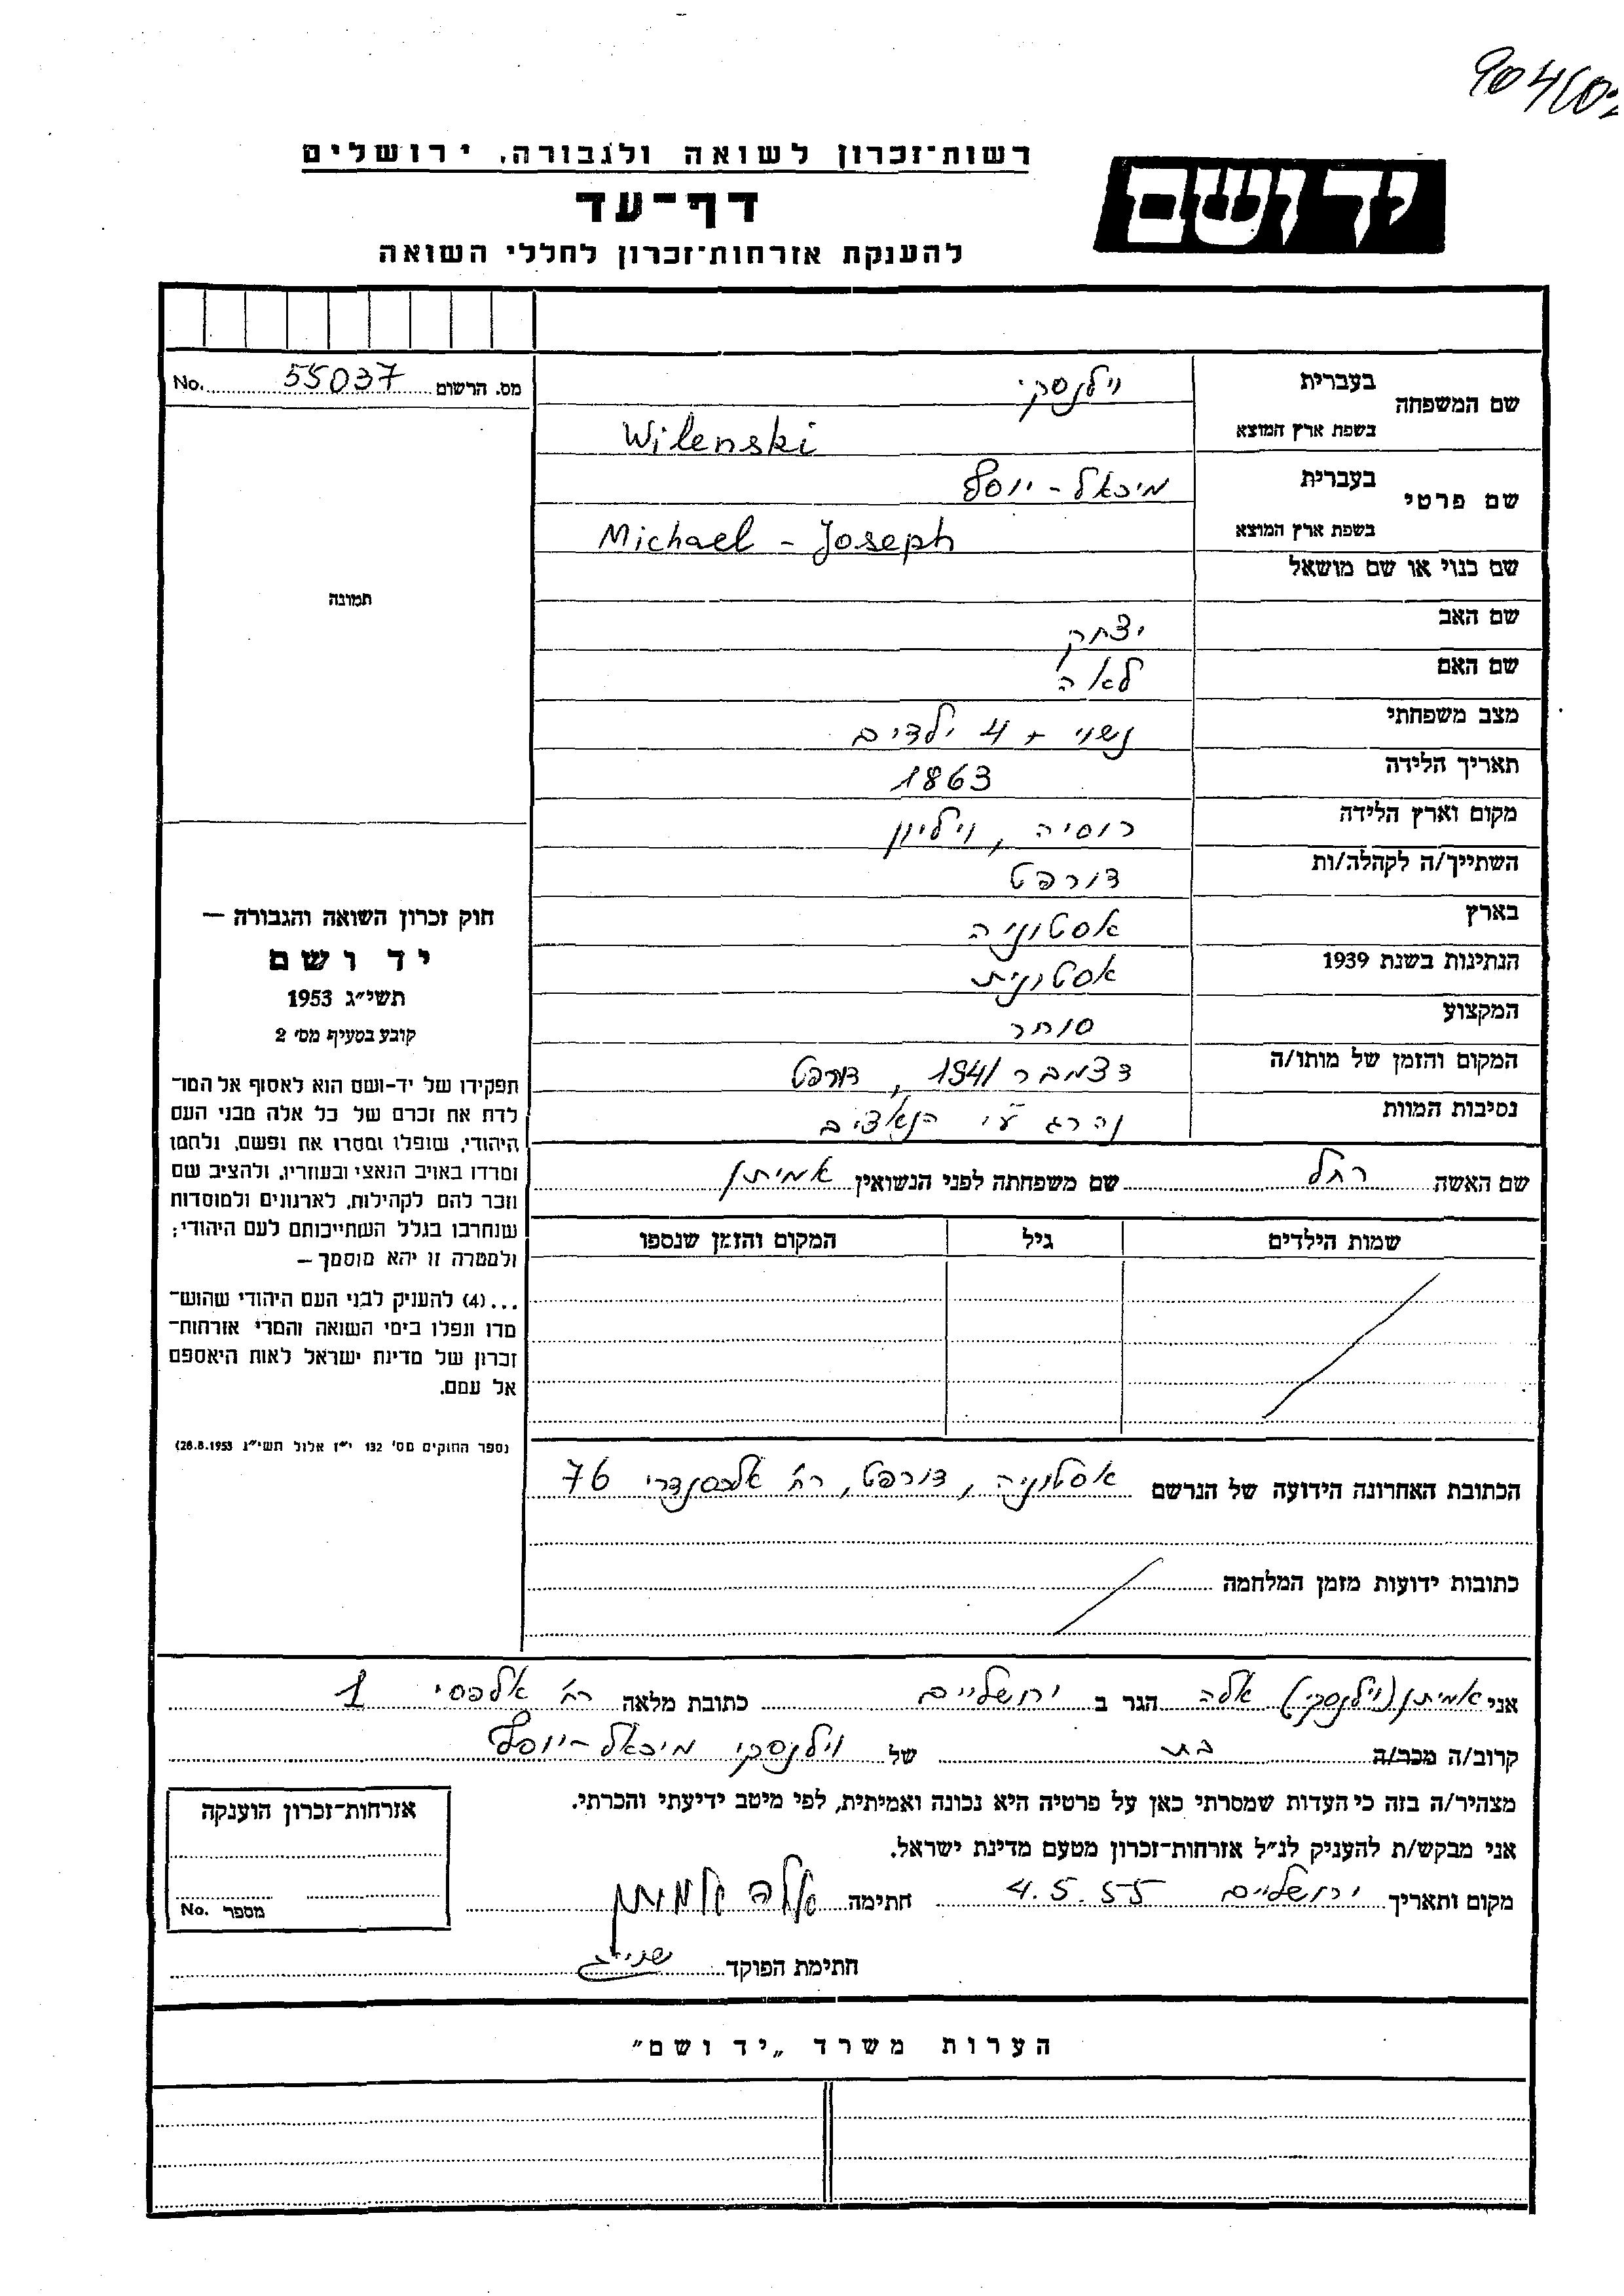 904/02
רשות־זכרון לשואה ולגבורה, ירושלים
יד ושם
דף־עד
להענקת אזרחות־זכרון לחללי השואה
מס. הרשום 55037 No.
תמונה
חוק זכרון השואה והגבורה —
יד ושם
תשי״ג 1953
קובע בסעיף מס׳ 2
תפקידו של יד-ושם הוא לאסוף אל המו־
לדת את זכרם של כל אלה מבני העם
היהודי, שנפלו ומסרו את נפשם, נלחמו
ומרדו באויב הנאצי ובעוזריו, ולהציב שם
וזכר להם לקהילות, לארגונים ולמוסדות
שנחרבו בגלל השתייכותם לעם היהודי;
ולמטרה זו יהא מוסמך —
...(4) להעניק לבני העם היהודי שהוש־
מדו ונפלו בימי השואה והמרי אזרחות־
זכרון של מדינת ישראל לאות היאספם
אל עמם.
(ספר החוקים מס׳ 132 י״ז אלול תשי״ג 28.8.1953)
שם המשפחה
בעברית וילנסקי
בשפת ארץ המוצא Wilenski
שם פרטי
בעברית מיכאל - יוסף
בשפת ארץ המוצא Michael - Joseph
שם כנוי או שם מושאל
שם האב יצחק
שם האם לאה
מצב משפחתי נשוי + 4 ילדים
תאריך הלידה 1863
מקום וארץ הלידה רוסיה, ויליון
השתייך/ה לקהלה/ות דורפט
בארץ אסטוניה
הנתינות בשנת 1939 אסטונית
המקצוע סוחר
המקום והזמן של מותו/ה דצמבר 1941, דורפט
נסיבות המוות נהרג ע״י הנאצים
שם האשה רחל שם משפחתה לפני הנשואין אמיתן
שמות הילדים גיל המקום והזמן שנספו
הכתובת האחרונה הידועה של הנרשם אסטוניה, דורפט, רח׳ אלכסנדרי 76
כתובות ידועות מזמן המלחמה
אני אמיתן (וילנסקי) אלה הגר ב ירושלים כתובת מלאה רח׳ אלפסי 1
קרוב/ה מכר/ה בת של וילנסקי מיכאל - יוסף
מצהיר/ה בזה כי העדות שמסרתי כאן על פרטיה היא נכונה ואמיתית, לפי מיטב ידיעתי והכרתי.
אני מבקש/ת להעניק לנ״ל אזרחות־זכרון מטעם מדינת ישראל.
מקום ותאריך ירושלים 4.5.55 חתימה אלה אמיתן
חתימת הפוקד
אזרחות־זכרון הוענקה
מספר No.
הערות משרד „יד ושם״